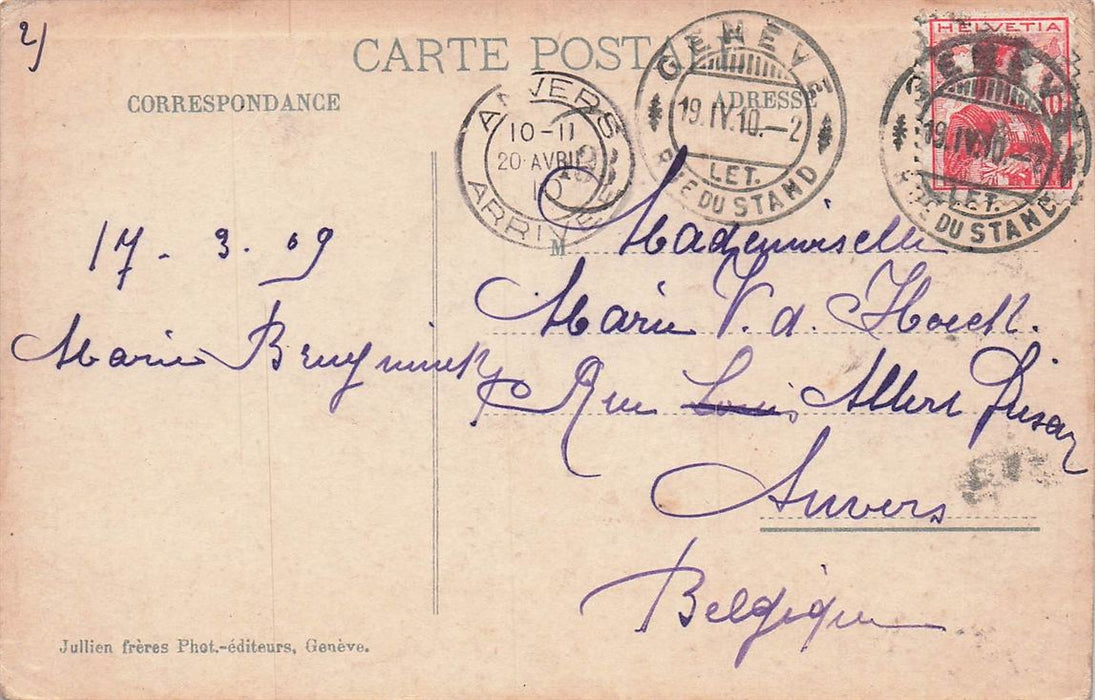 2)
CARTE POSTALE
CORRESPONDANCE
ADRESSE
HELVETIA
10
GENÈVE
19.IV.10.–2
LET.
RUE DU STAND
GENÈVE
19.IV.10.–2
LET.
RUE DU STAND
ANVERS
10-11
20 AVRIL
10
ARRIVÉE
17 - 3 - 09
Marie
M
Mademoiselle
Marie V. d. Hoeck.
Rue Louis Albert
Anvers
Belgique
Jullien frères Phot.-éditeurs, Genève.